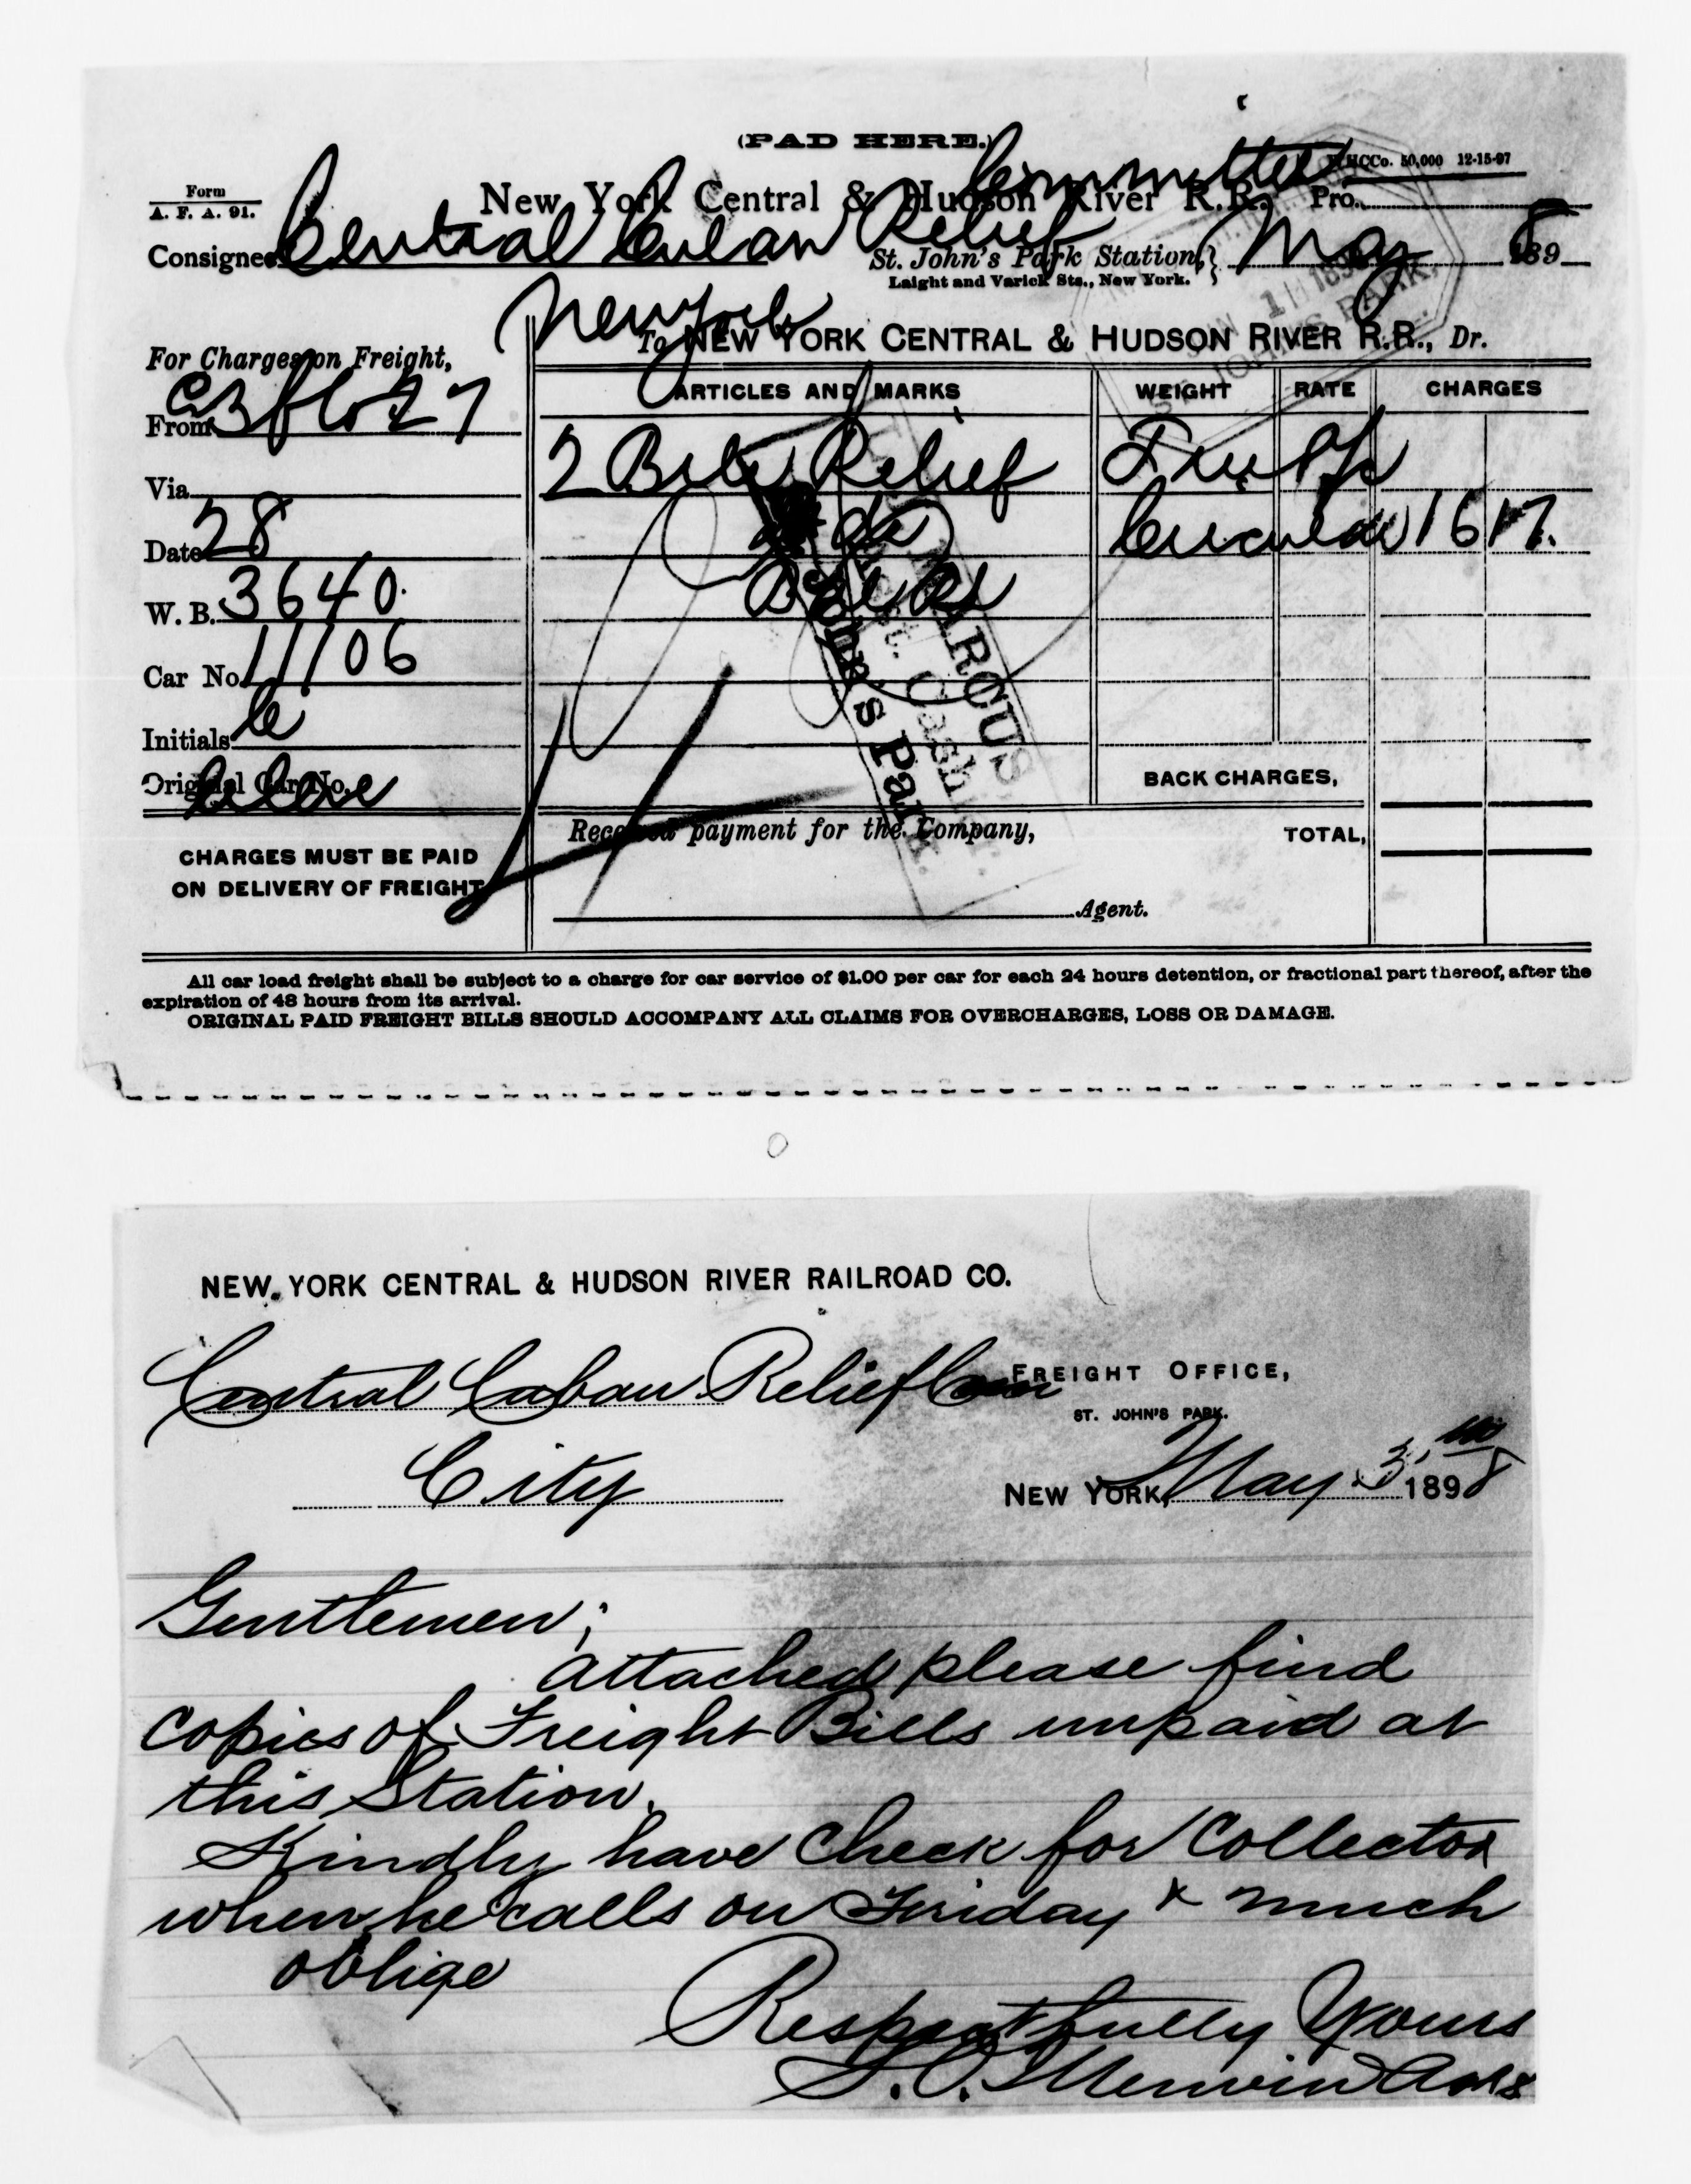 (PAD HERE.)
Form
A. F. A. 91.
Committee
50,000 12-15-97
New York Central & Hudson River R.R. Pro.
Consignee Central Cuban Relief
St. John's Park Station,
Laight and Varick Sts., New York.
May 8 189
New York
For Charges on Freight,
To NEW YORK CENTRAL & HUDSON RIVER R.R., Dr.
ARTICLES AND MARKS WEIGHT RATE CHARGES
From
Via
2 Relief
Date 28
1617.
W. B. 3640.
Car No. 11106
Initials
Original Car No.
BACK CHARGES,
St. John's Park.
CHARGES MUST BE PAID
ON DELIVERY OF FREIGHT
Received payment for the Company,
TOTAL,
Agent.
All car load freight shall be subject to a charge for car service of $1.00 per car for each 24 hours detention, or fractional part thereof, after the
expiration of 48 hours from its arrival.
ORIGINAL PAID FREIGHT BILLS SHOULD ACCOMPANY ALL CLAIMS FOR OVERCHARGES, LOSS OR DAMAGE.
NEW YORK CENTRAL & HUDSON RIVER RAILROAD CO.
Central Cuban Relief Com
FREIGHT OFFICE,
ST. JOHN'S PARK.
City
NEW YORK, May 3, 1898
Gentlemen;
attached please find
copies of Freight Bills unpaid at
this Station.
Kindly have Check for Collector
when he calls on Friday & much
oblige
Respectfully Yours